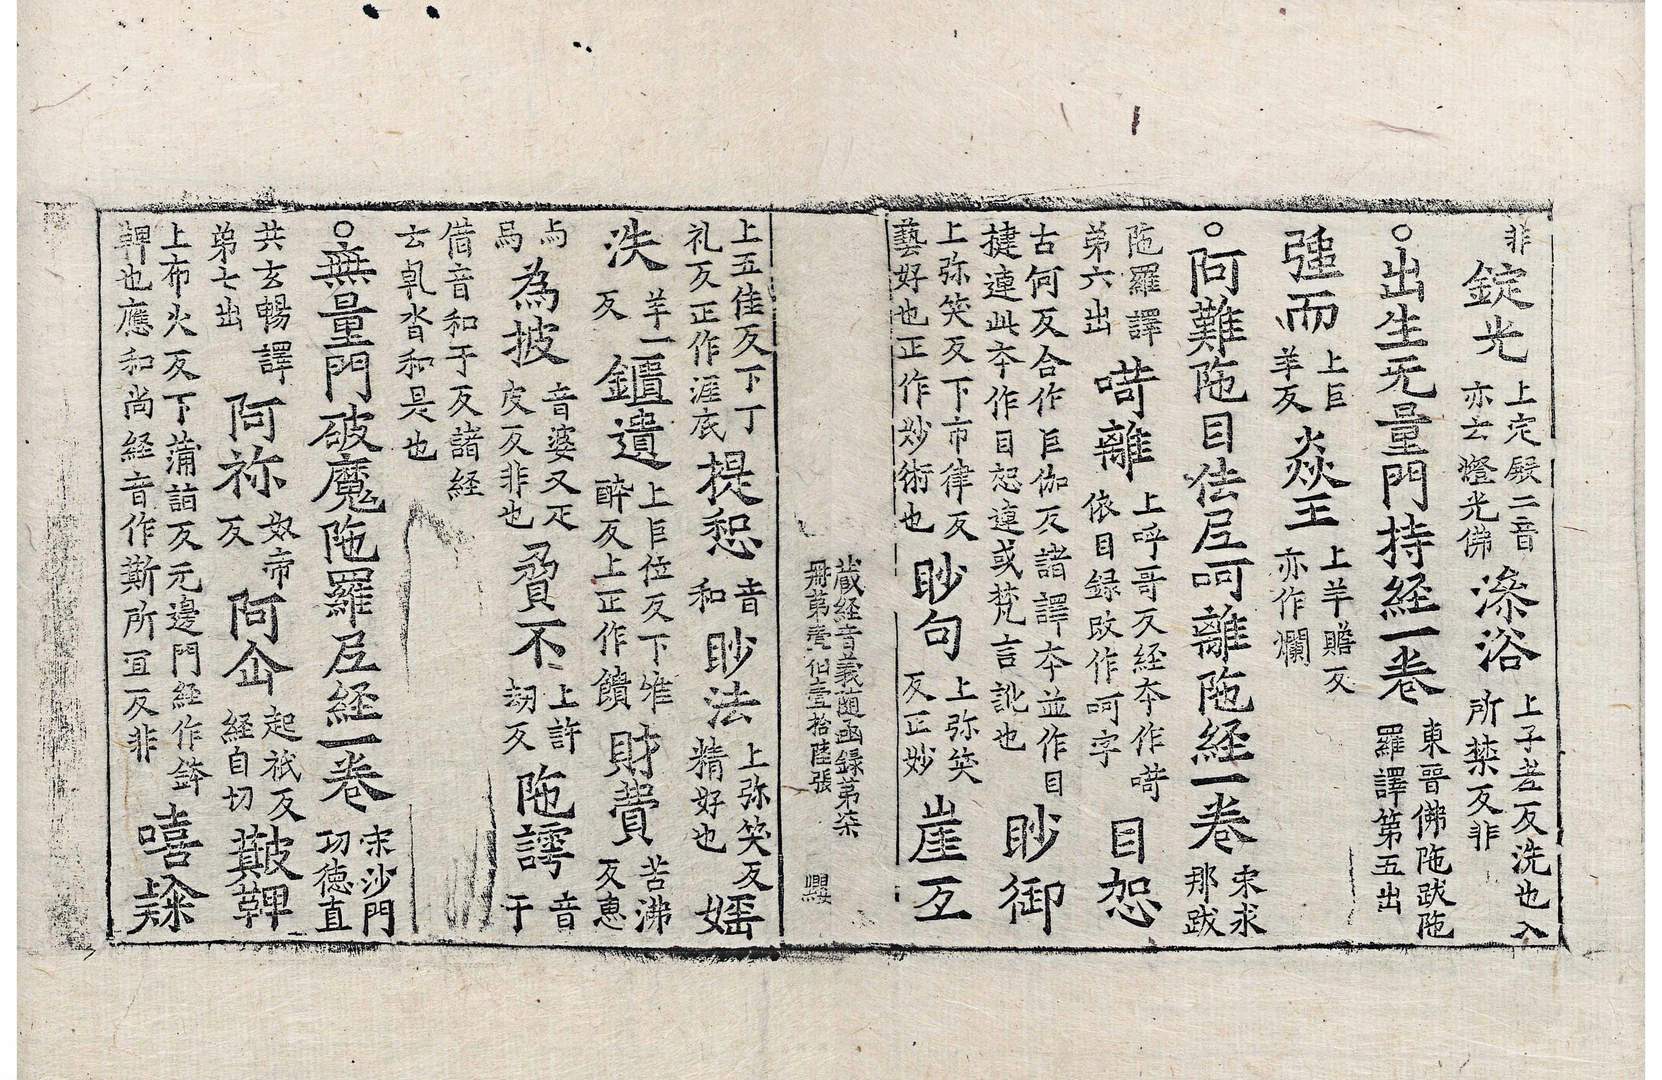 非 錠光 上定殿二音亦云燈光佛 澡浴 上子老反洗也入所禁反非
○出生无量門持経一卷 東晉佛陁跋陁羅譯第五出
強而 上巨羊反 焱王 上羊贍反亦作爓
○阿難陁目佉𡰱呵離陁経一卷 宋求那跋
陁羅譯第六出 㗿離 上呼哥反経夲作㗿依目録改作呵字 目㤎
古何反合作巨伽反諸譯夲並作目揵連此夲作目㤎連或梵言訛也 眇御
上弥笑反下市律反藝好也正作妙術也 眇句 上弥笑反正妙 崖互
藏経音義随函録第柒 冊第 伯壹拾陸張 㼆
上五佳反下丁礼反正作涯底 提㤎 音和 眇法 上弥笑反精好也 婬
泆 羊一反 鐀遺 上巨位反下惟醉反上正作饋 財費 苦沸反惠
為披 音婆又疋皮反非也 貟不 上許刼反 陁謣 音于
借音和于反諸経云乹沓和是也
○無量門破魔陁羅𡰱経一卷 宋沙門功德直
共玄暢譯第七出 阿祢 奴帝反 阿企 起祇反経自切 䩗鞞
上布火反下蒲詣反元邊門経作𨥧鞞也應和尚経音作斯所冝反非 嘻